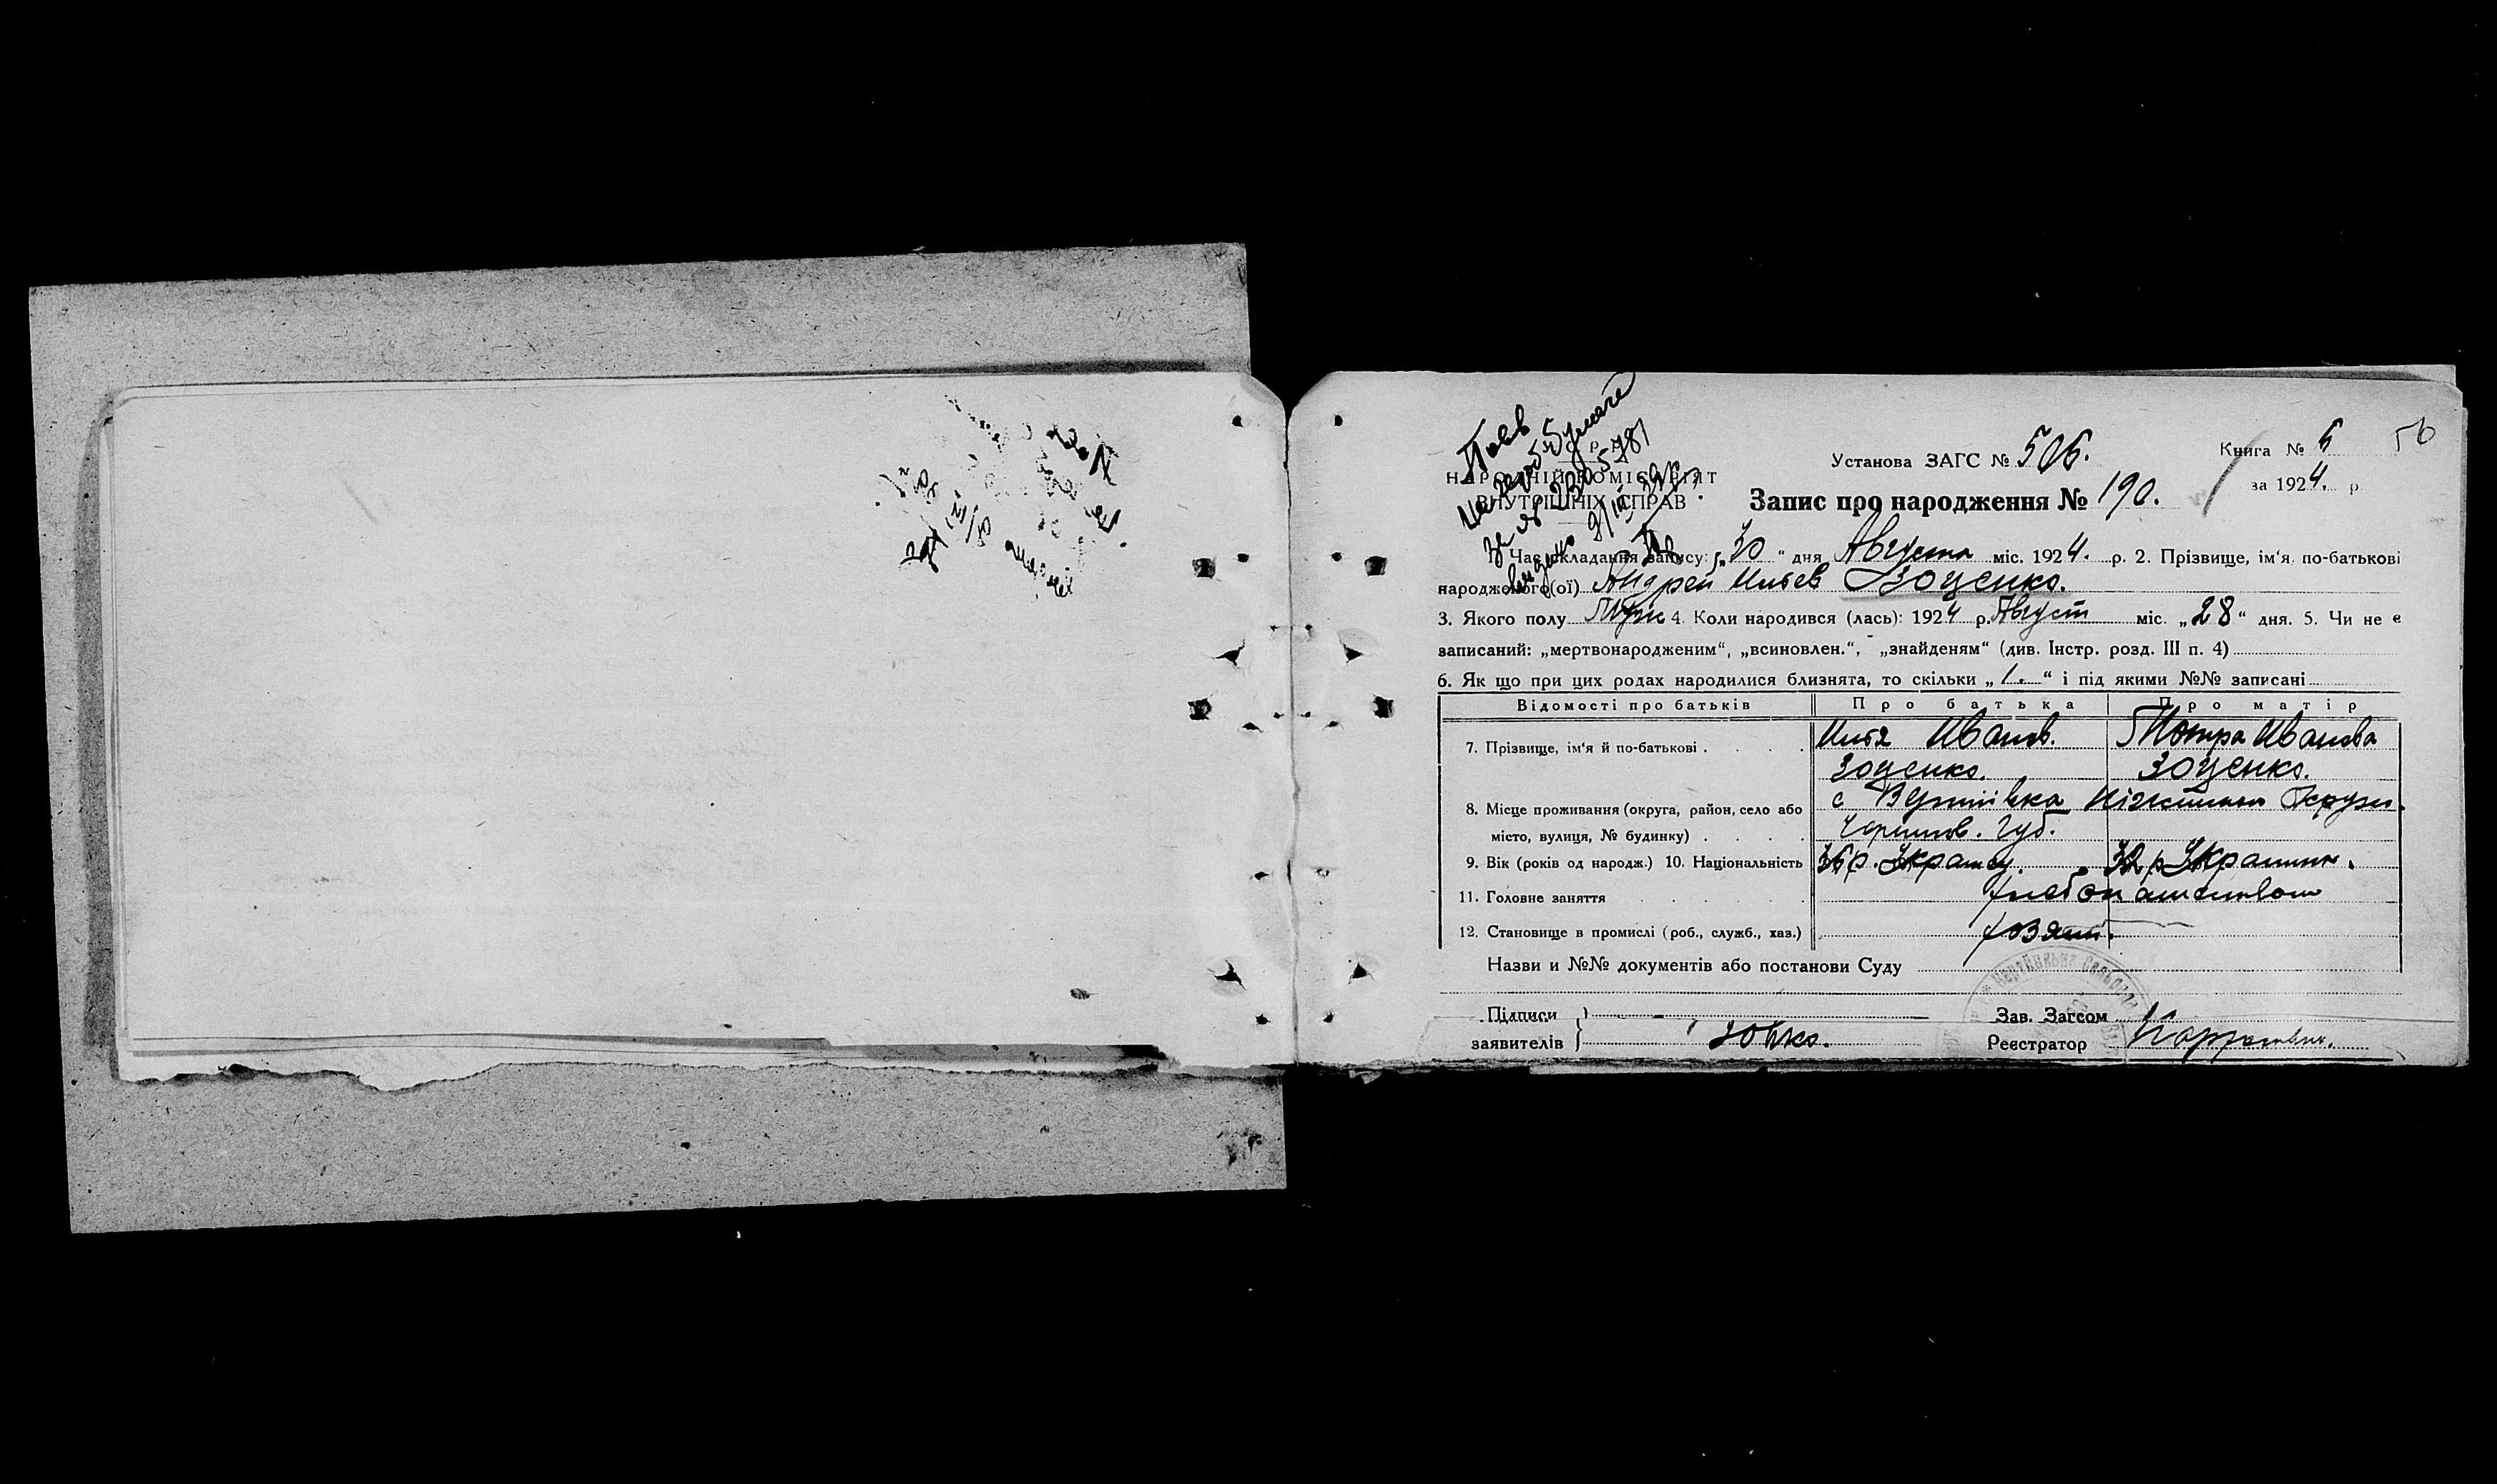 У. С. Р. Р.
НАРОДНІЙ КОМІСАРІЯТ
ВНУТРІШНІХ СПРАВ
Установа ЗАГС № 506.
Книга № 5
56
за 1924. р.
Запис про народження № 190.
1. Час складання запису: „30“ дня Августа міс. 1924. р. 2. Прізвище, ім‘я по-батькові
народженого(ої) Андрей Зоценко.
3. Якого полу Муж 4. Коли народився (лась): 1924 р. Август міс. „28“ дня. 5. Чи не є
записаний: „мертвонародженим“, „всиновлен.“, „знайденям“ (див. Інстр. розд. III п. 4)
6. Як що при цих родах народилися близнята, то скільки „1.“ і під якими №№ записані
Відомості про батьків Про батька Про матір
7. Прізвище, ім‘я й по-батькові Иванов. Иванова
Зоценко. Зоценко.
8. Місце проживання (округа, район, село або с Вертіївка Ніжинськ Округи.
місто, вулиця, № будинку) Черниг. Губ.
9. Вік (років од народж.) 10. Національність 36 р. Украин. 32 р Украинк.
11. Головне заняття хлебопашеством
12. Становище в промислі (роб., служб., хаз.) хозяин.
Назви и №№ документів або постанови Суду
Підписи Зав. Загсом
заявителів Реєстратор